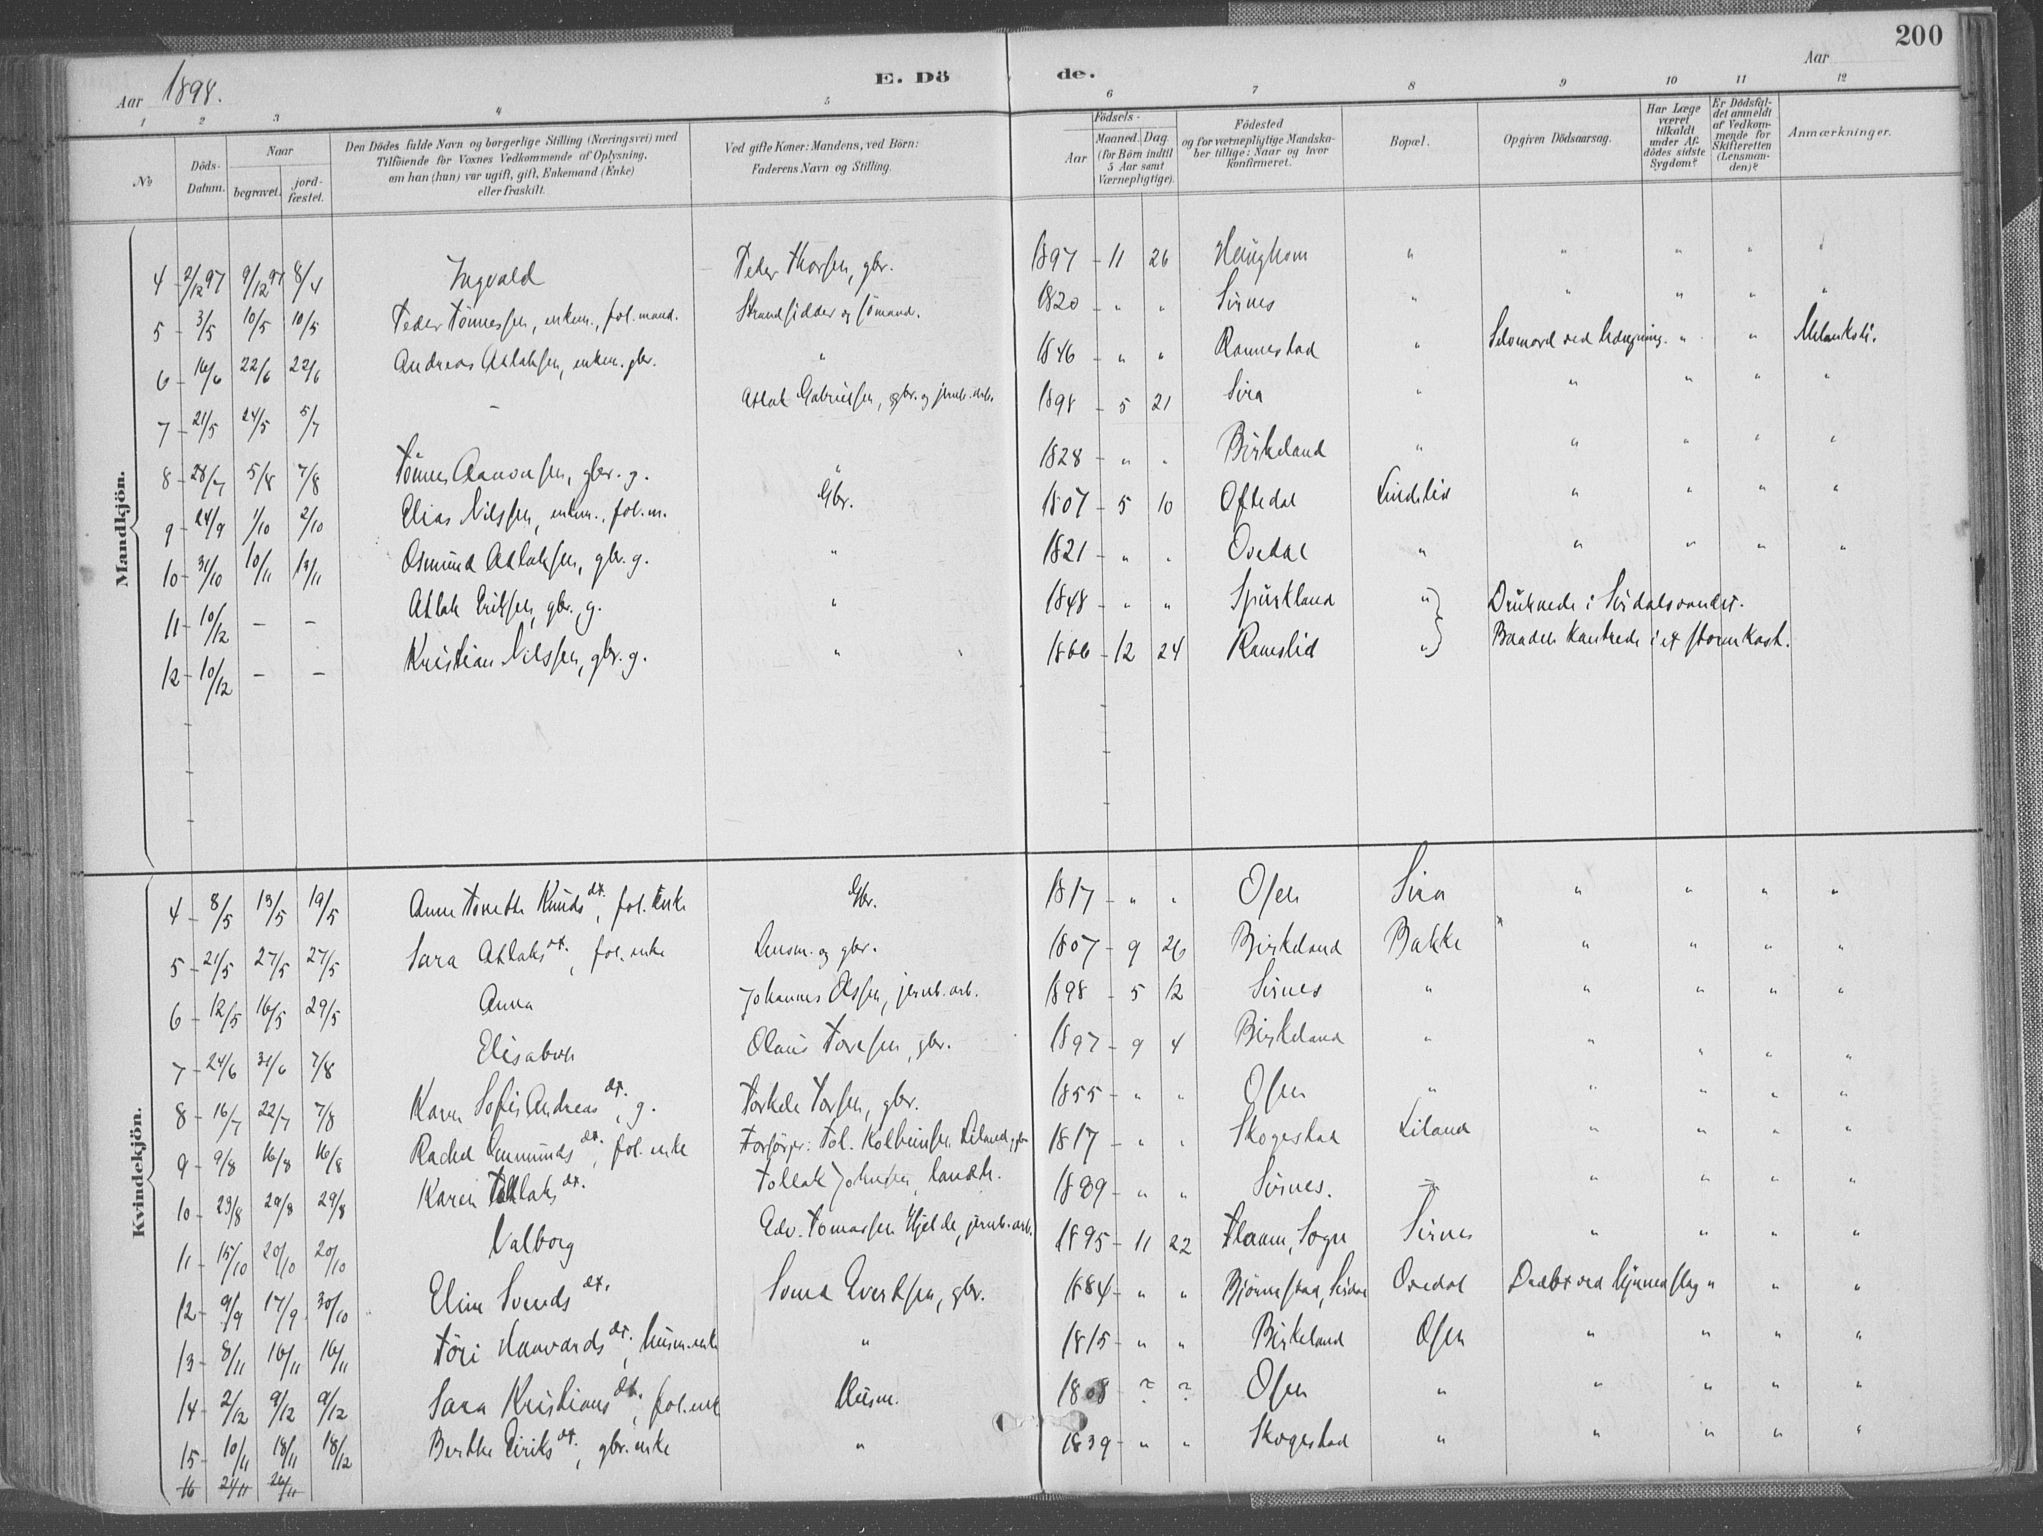 200
Aar 1898. E. Dö de. Aar
1 2 3 4 5 6 7 8 9 10 11 12
No
Döds-Datum.
Naar
begravet.
jord-fæstet.
Den Dödes fulde Navn og borgerlige Stilling (Næringsvei) med
Tilföiende for Voxnes Vedkommende af Oplysning,
om han (hun) var ugift, gift, Enkemand (Enke)
eller fraskilt.
Ved gifte Koner: Mandens, ved Börn:
Faderens Navn og Stilling.
Födsels-
Aar
Maaned. Dag.
(for Börn indtil
5 Aar samt
Værnepligtige).
Födested
og for værnepligtige Mandska-
ber tillige: Naar og hvor
konfirmeret.
Bopæl.
Opgiven Dödsaarsag.
Har Læge
været
tilkaldt
under Af-
dödes sidste
Sygdom?
Er Dödsfal-
det anmeldt
af Vedkom-
mende for
Skifteretten
(Lensman-
den)?
Anmærkninger.
Mandkjön.
4 2/12 97 9/12 97 8/4 Ingvald Peder Thorsen, gbr. 1897 - 11 26 Haughom " " " " "
5 3/5 10/5 10/5 Peder Tønnessen, enkem., fol.mand. Strandsidder og sømand. 1820 - " " Sirnes " " " " "
6 16/6 22/6 22/6 Andreas Atlaksen, enkem. gbr. " 1846 - " " Rannestad " Selvmord ved hængning. " " Melankoli.
7 21/5 24/5 5/7 - Atlak Gabrielsen, gbr. og jernb.arb. 1898 - 5 21 Sira " " " " "
8 28/7 5/8 7/8 Tønnes Aanonsen, gbr. g. " 1828 - " " Birkeland " " " " "
9 24/9 1/10 2/10 Elias Nilssen, enkem., fol.m. Gbr. 1807 - 5 10 Oftedal Lindelid " " " "
10 31/10 10/11 13/11 Osmund Atlaksen, gbr. g. " 1821 - " " Ovedal " " " " "
11 10/12 - - Atlak Eriksen, gbr. g. " 1848 - " " Spirkland " Druknede i Sirdalsvandet.
12 10/12 - - Kristian Nilssen, gbr. g. " 1866 - 12 24 Rameslid " Baaden kantrede i et stormkast.
Kvindekjön.
4 8/5 13/5 19/5 Anne Tonette Knudsdt., fol. enke Gbr. 1817 - " " Osen Sira " " " "
5 21/5 27/5 27/5 Sara Atlaksdt., fol. enke Lensm. og gbr. 1807 - 9 26 Birkeland Bakke " " " "
6 12/5 16/5 29/5 Anna Johannes Olssen, jernb.arb. 1898 - 5 12 Sirnes " " " " "
7 24/6 31/6 7/8 Elisabeth Olaus Toresen, gbr. 1897 - 9 4 Birkeland " " " " "
8 16/7 22/7 7/8 Karen Sofie Andreasdt., g. Torkel Torsen, gbr. 1855 - " " Osen " " " " "
9 9/8 16/8 16/8 Rachel Gunmundsdt., fol. enke Forsørger: Tol. Kolbeinsen Liland, gbr 1817 - " " Skogestad Liland " " " "
10 23/8 29/8 29/8 Karen Tollaksdt. Tollak Johnsen, landh. 1889 - " " Sirnes. " " " "
11 15/10 20/10 20/10 Valborg Edv. Tomassen Hjelde, jernb.arb. 1895 - 11 22 Flaam, Sogn Sirnes " " " "
12 9/9 17/9 30/10 Eline Svendsdt. Svend Evertsen, gbr. 1884 - " " Bjørnestad, Sirdal Ovedal Dræbt ved lynnedslag " " "
13 8/11 16/11 16/11 Tøri Haavardsdt., husm.enke " 1815 - " " Birkeland Osen " " " "
14 2/12 9/12 9/12 Sara Kristiansdt., fol.enk Husm. 1808 ? ? Osen " " " " "
15 10/11 18/11 18/12 Berthe Eiriksdt., gbr. enke " 1839 - " " Skogestad " " " " "
16 21/11 26/11